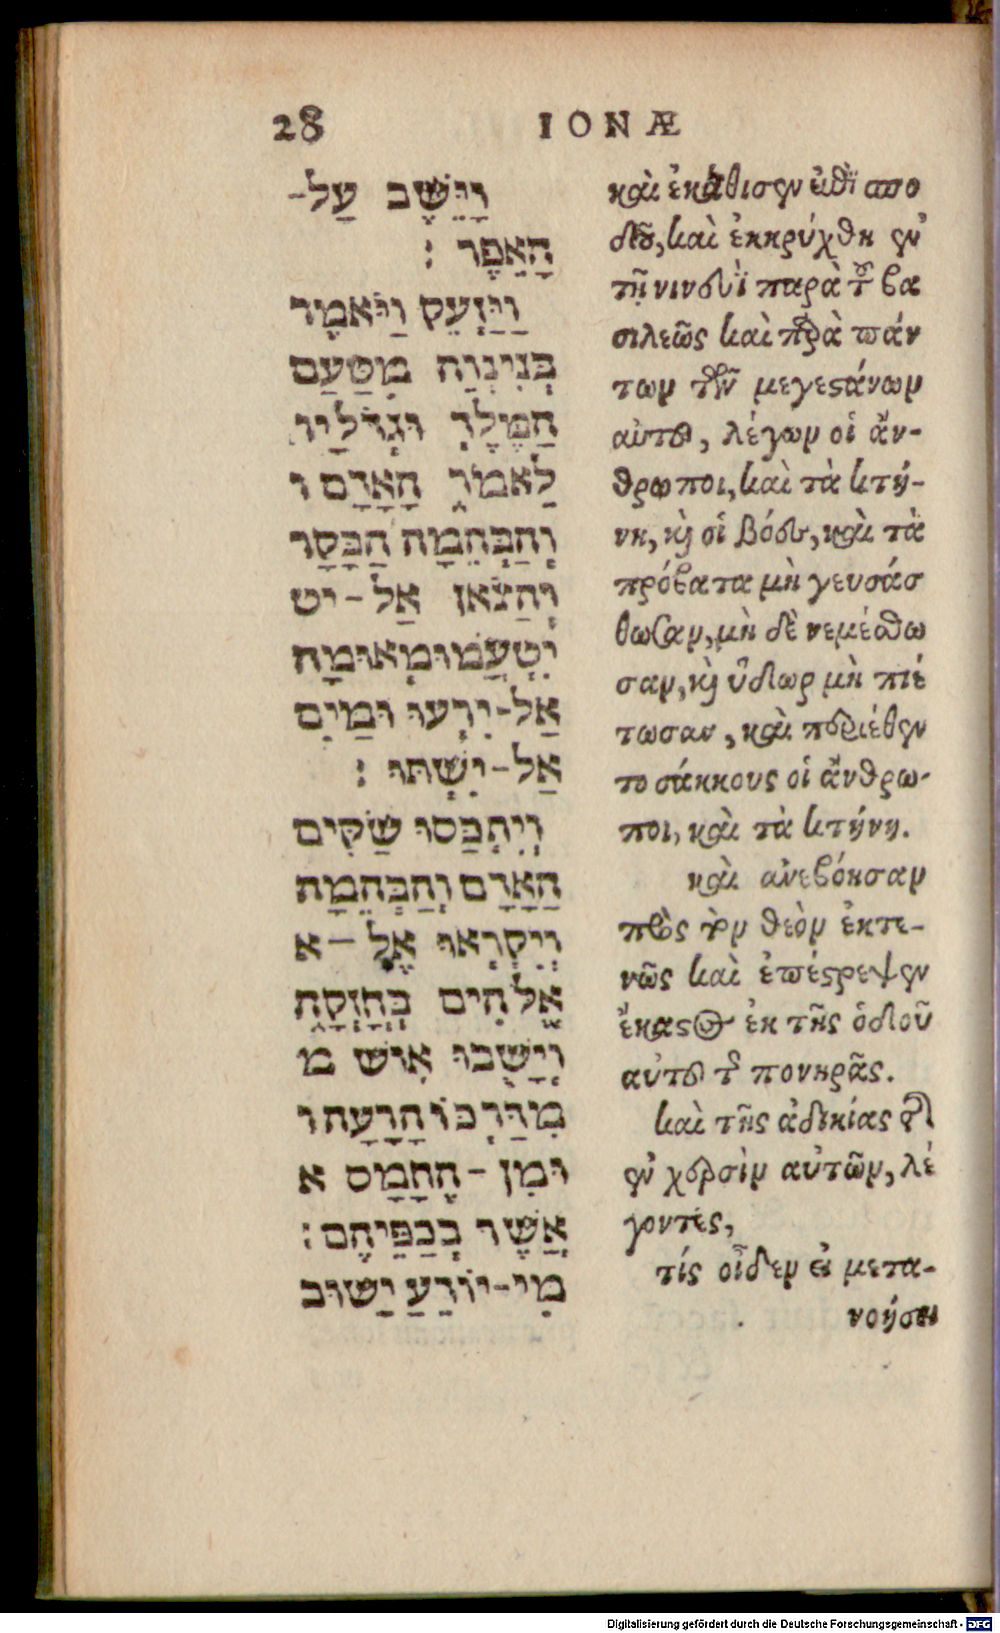 28 IONÆ
וַיֵּשֶׁב עַל־
הָאֵפֶר :
וַיַּזְעֵק וַיֹּאמֶר
בְּנִינְוֵה מִטַּעַם
הַמֶּלֶךְ וּגְדֹלָיו
לֵאמֹר הָאָדָם ו
וְהַבְּהֵמָה הַבָּקָר
וְהַצֹּאן אַל־יט
יִטְעֲמוּמְאוּמָה
אַל־יִרְעוּ וּמַיִם
אַל־יִשְׁתּוּ :
וְיִתְכַּסוּ שַׂקִּים
הָאָדָם וְהַבְּהֵמָה
וְיִקְרְאוּ אֶל־א
אֱלֹהִים בְּחָזְקָה
וְיָשֻׁבוּ אִישׁ מ
מִדַּרְכּוֹ הָרָעָה ו
וּמִן־הֶחָמָס א
אֲשֶׁר בְּכַפֵּיהֶם :
מִי־יוֹדֵעַ יָשׁוּב
καὶ ἐκάθισεν ἐπὶ σπο
δοῦ, καὶ ἐκηρύχθη ἐν
τῇ νινευῒ παρὰ τοῦ βα
σιλεῶς καὶ παρὰ πάν
των τῶν μεγεστάνων
αὐτοῦ, λέγων οἱ ἄν-
θρωποι, καὶ τὰ κτή-
νη, καὶ οἱ βόες, καὶ τὰ
πρόβατα μὴ γευσάσ
θωσαν, μὴ δὲ νεμέσθω
σαν, καὶ ὕδωρ μὴ πιέ
τωσαν, καὶ περιέθεν
το σάκκους οἱ ἄνθρω-
ποι, καὶ τὰ κτήνη.
καὶ ἀνεβόησαν
πρὸς τὸν θεὸν ἐκτε-
νῶς καὶ ἐπέστρεψεν
ἕκαστος ἐκ τῆς ὁδοῦ
αὐτοῦ τῆς πονηρᾶς.
καὶ τῆς ἀδικίας τῆς
ἐν χερσὶν αὐτῶν, λέ
γοντες,
τίς οἶδεν εἰ μετα-
νοήσει
Digitalisierung gefördert durch die Deutsche Forschungsgemeinschaft - DFG